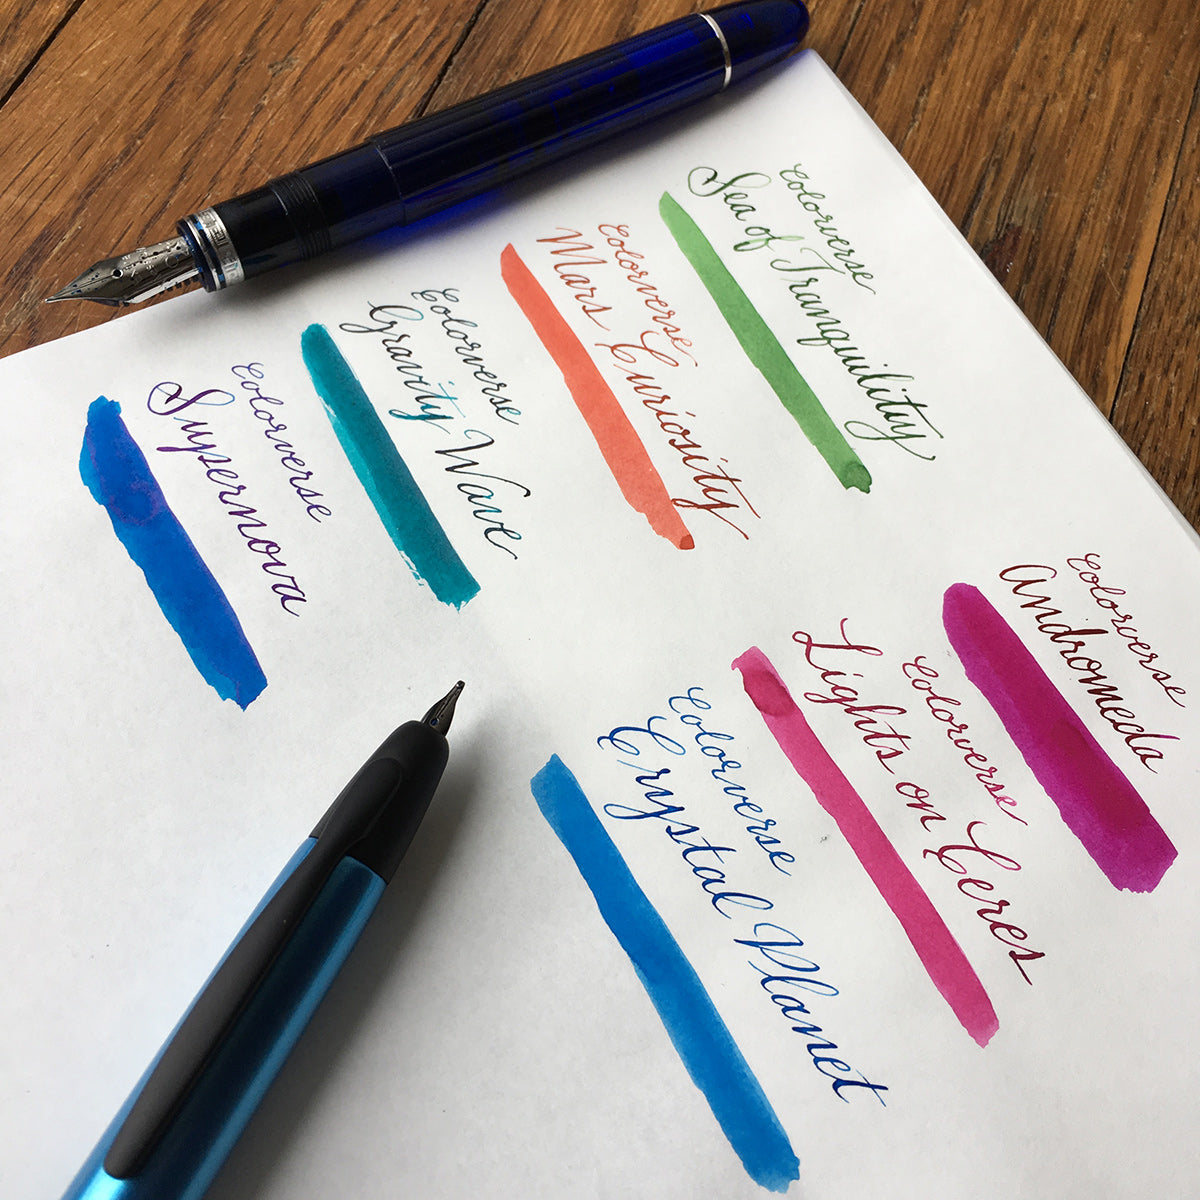 Colorverse
Sea of Tranquility
Colorverse
Mars Curiosity
Colorverse
Gravity Wave
Colorverse
Supernova
Colorverse
Andromeda
Colorverse
Lights on Ceres
Colorverse
Crystal Planet